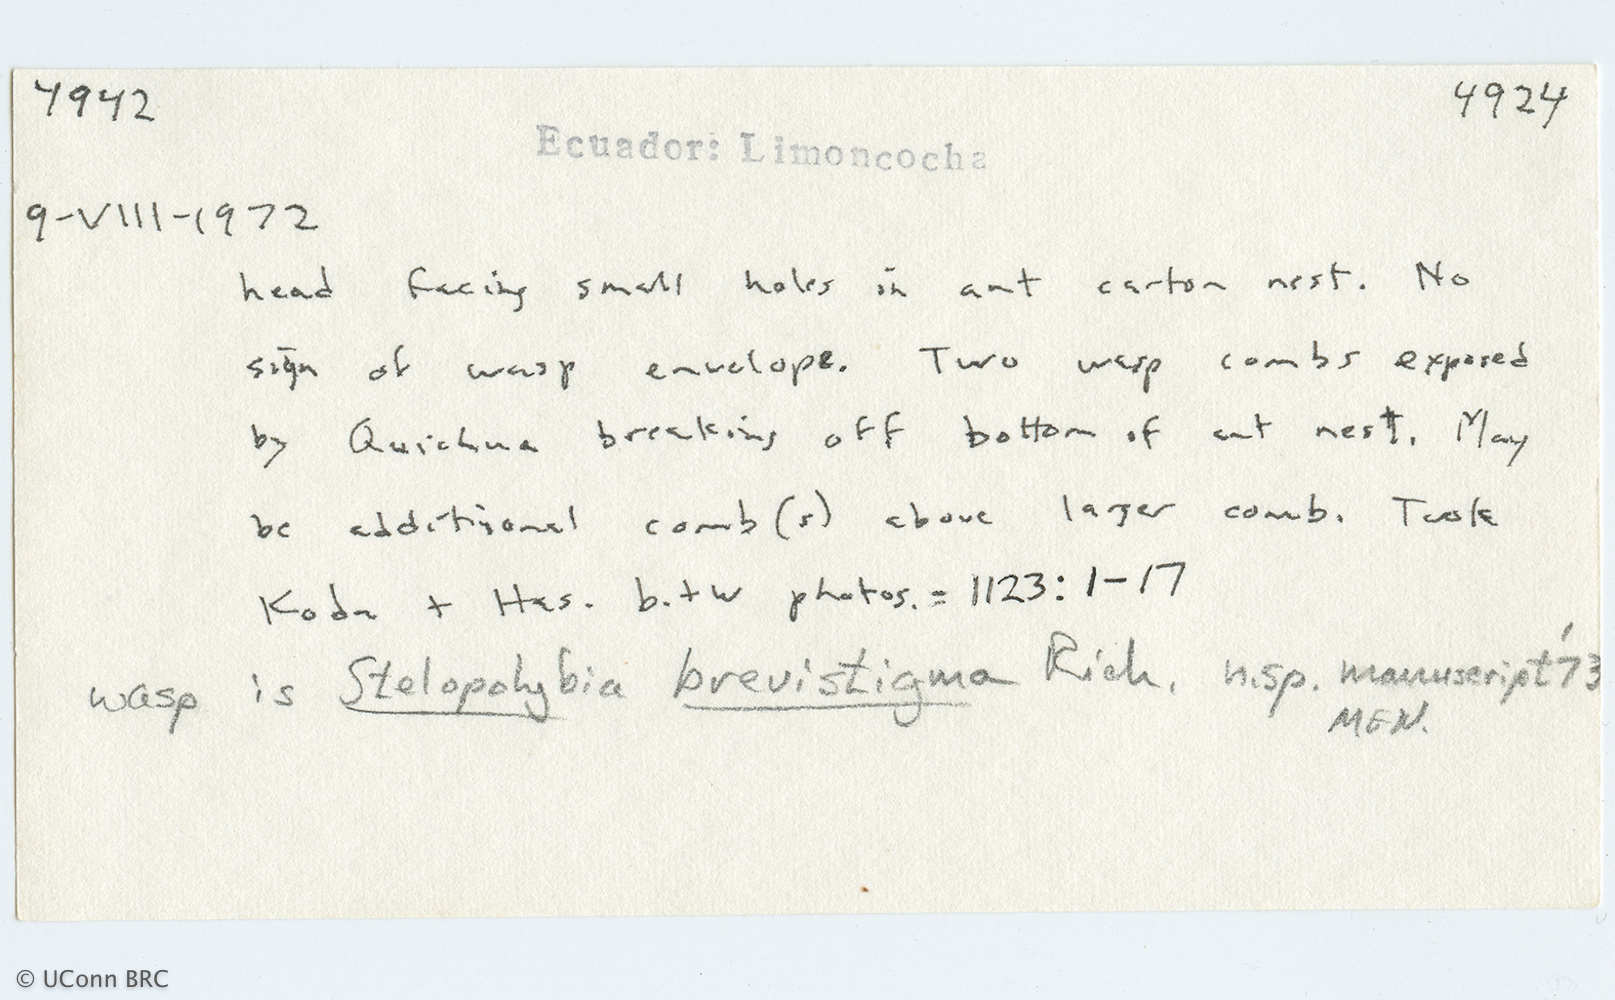 4942 4924
Ecuador: Limoncocha
9-VIII-1972
head facing small holes in ant carton nest. No
sign of wasp envelope. Two wasp combs exposed
by Quichua breaking off bottom of ant nest. May
be additional comb(s) above larger comb. Took
Koda + Has. b.+w photos. = 1123: 1-17
wasp is Stelopolybia brevistigma Rich. n.sp. manuscript '73
MEN.
© UConn BRC